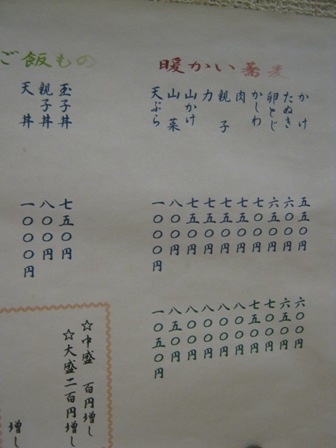 暖かい蕎麦
かけ 五五〇円 六〇〇円
たぬき 六〇〇円 六五〇円
卵とじ 六五〇円 七〇〇円
かしわ 七〇〇円 七五〇円
肉 七五〇円 八〇〇円
親子 七五〇円 八〇〇円
力 七五〇円 八〇〇円
山かけ 七五〇円 八〇〇円
山菜 八〇〇円 八五〇円
天ぷら 一〇〇〇円 一〇五〇円
ご飯もの
玉子丼 七五〇円
親子丼 八〇〇円
天丼 一〇〇〇円
☆中盛 百円増し
☆大盛二百円増し
増し